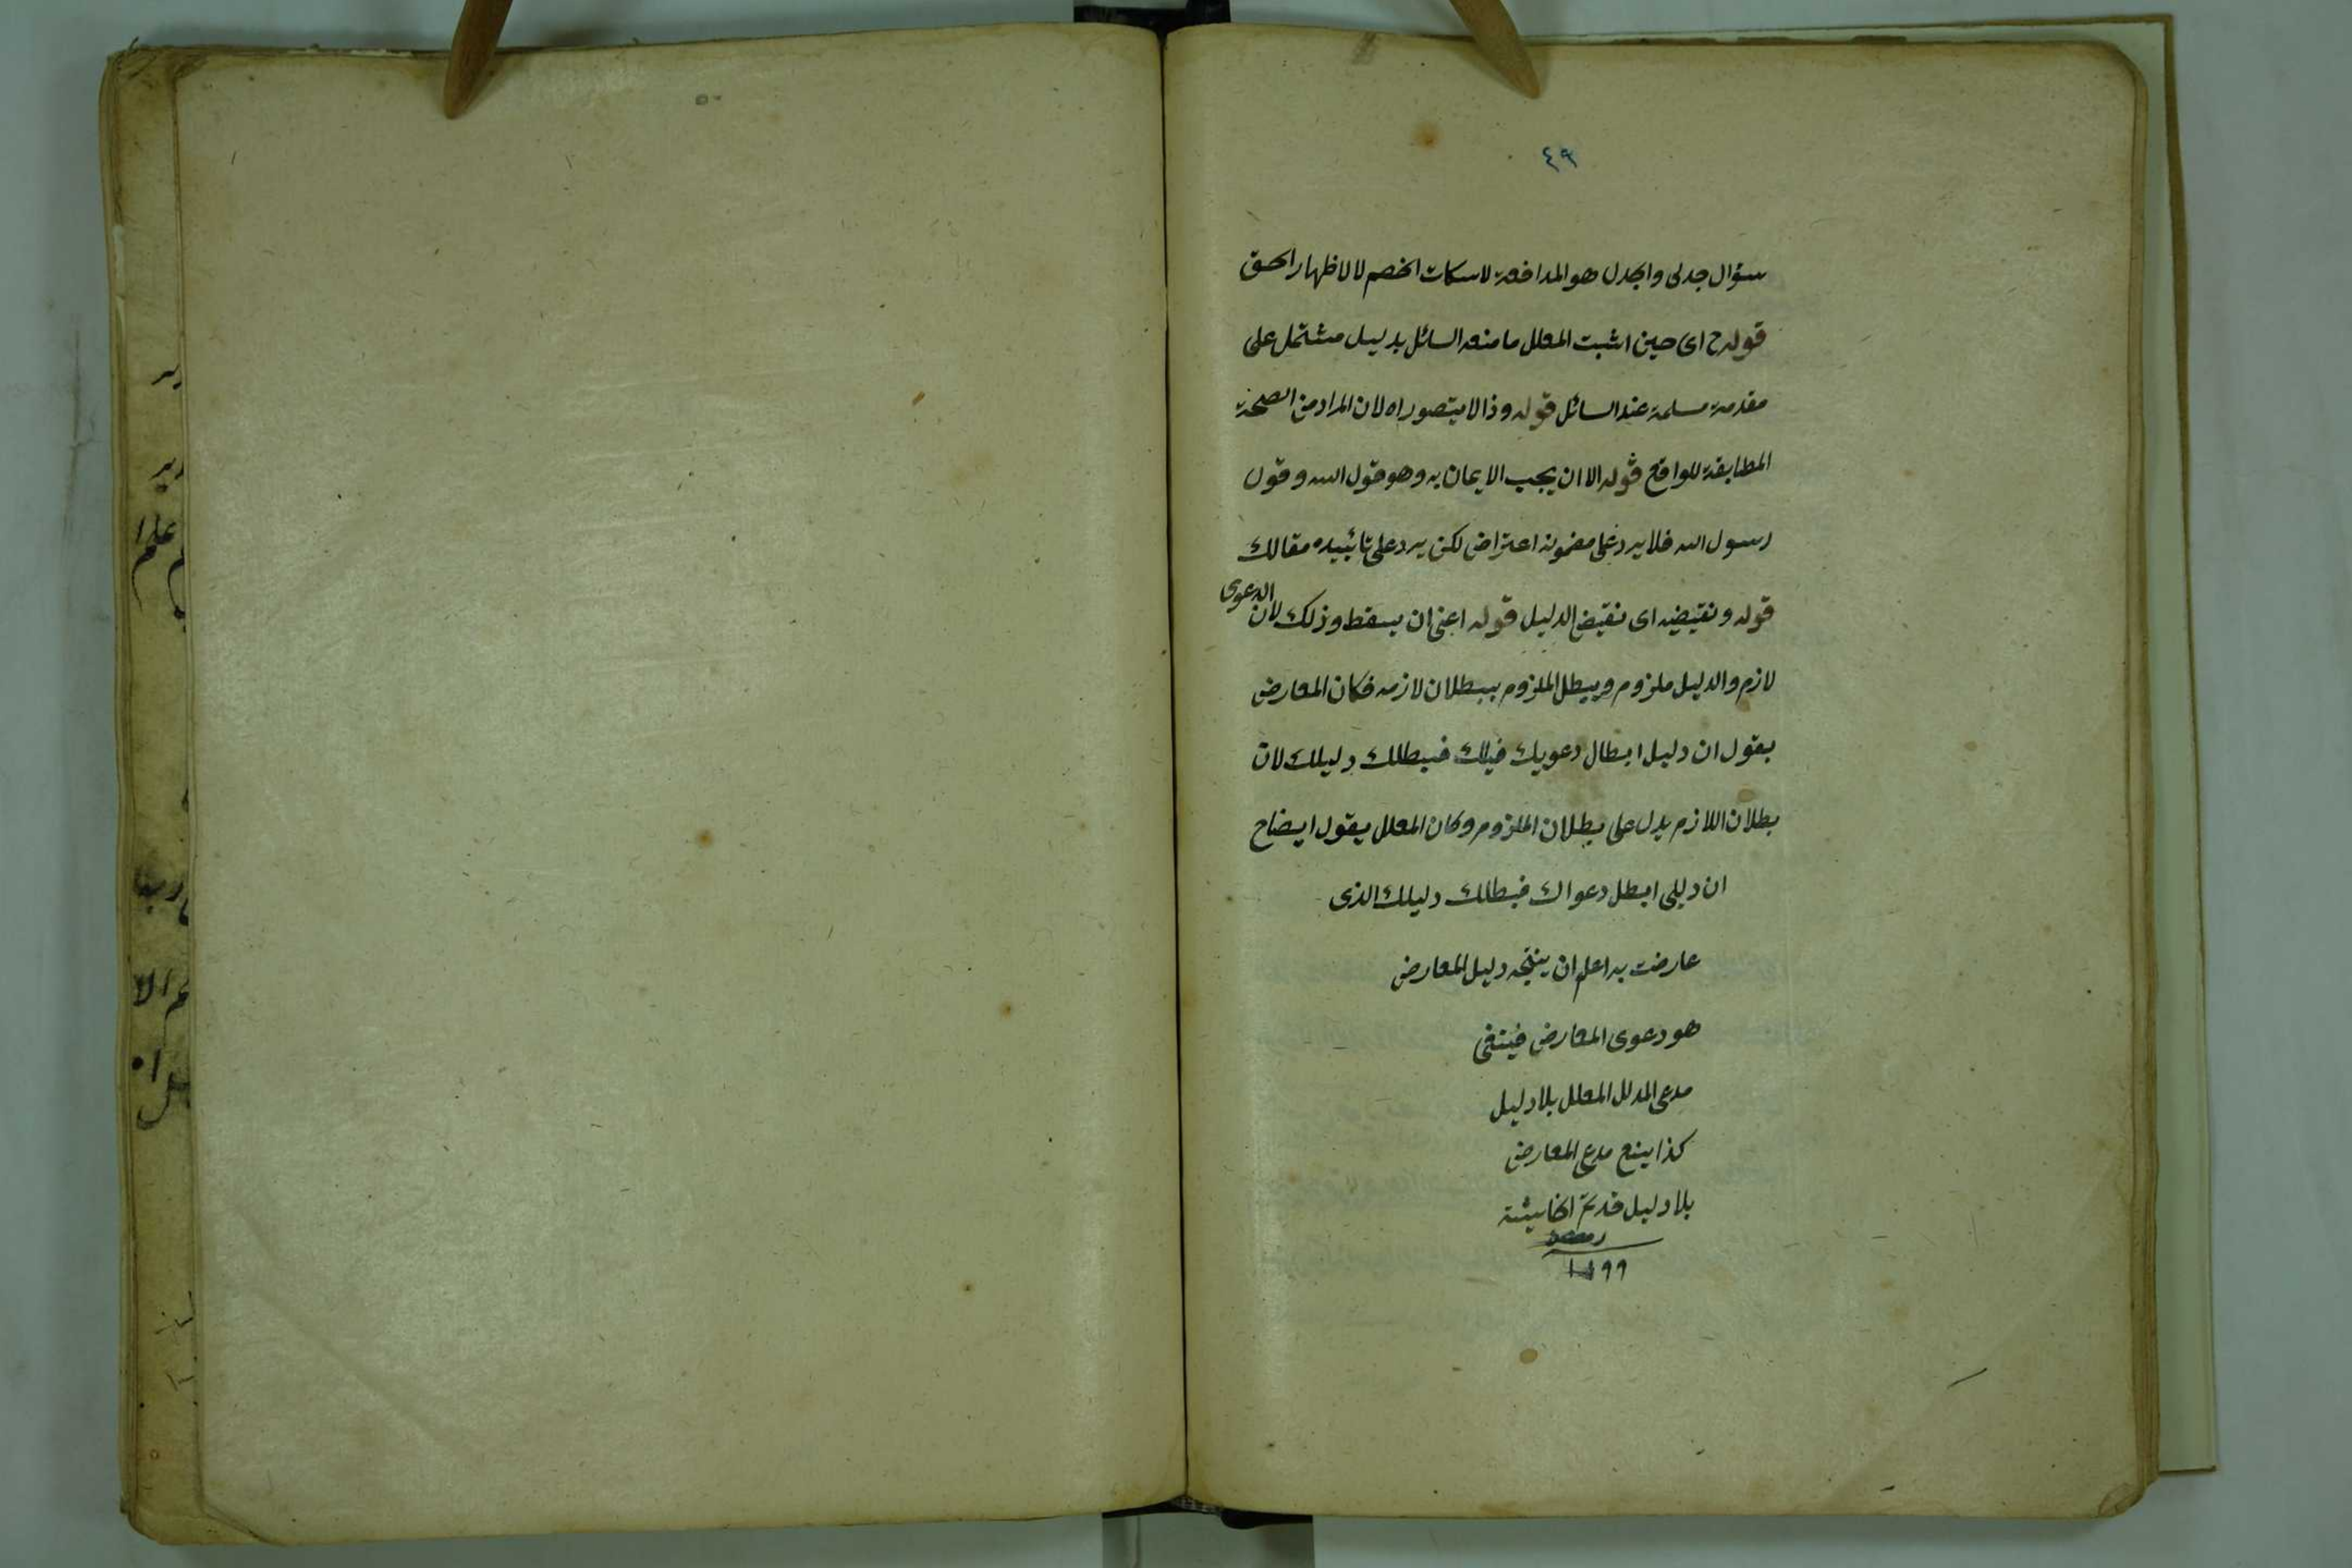 ٤٩
سؤال جدلى والجدل هو المدافعة لاسكات الخصم لا لاظهار الحق
قوله ح اى حين اثبت المعلل ما منعه السائل بدليل مشتمل على
مقدمة مسلمة عند السائل قوله وذا لا يتصور اه لان المراد من الصحة
المطابقة للواقع قوله الا ان يجب الايمان به وهو قول الله وقول
رسول الله فلا يرد على مضمونه اعتراض لكن يرد على تأييده مقالك
قوله ونقيضه اى نقيض الدليل قوله اعنى ان يسقط وذلك لان الدعوى
لازم والدليل ملزوم ويبطل الملزوم ببطلان لازمه فكان المعارض
يقول ان دليل ابطال دعويك فيبطلك دليلك لان
بطلان اللازم يدل على بطلان الملزوم وكان المعلل يقول ايضا ح
ان دليلى ابطل دعواك فبطلك دليلك الذى
عارضت به اعلم ان ينتجه دليل المعارض
هو دعوى المعارض فينتفى
مدعى المدلل المعلل بلا دليل
كذا يمنع مدعى المعارض
بلا دليل قد تم
١١٩٩
ير